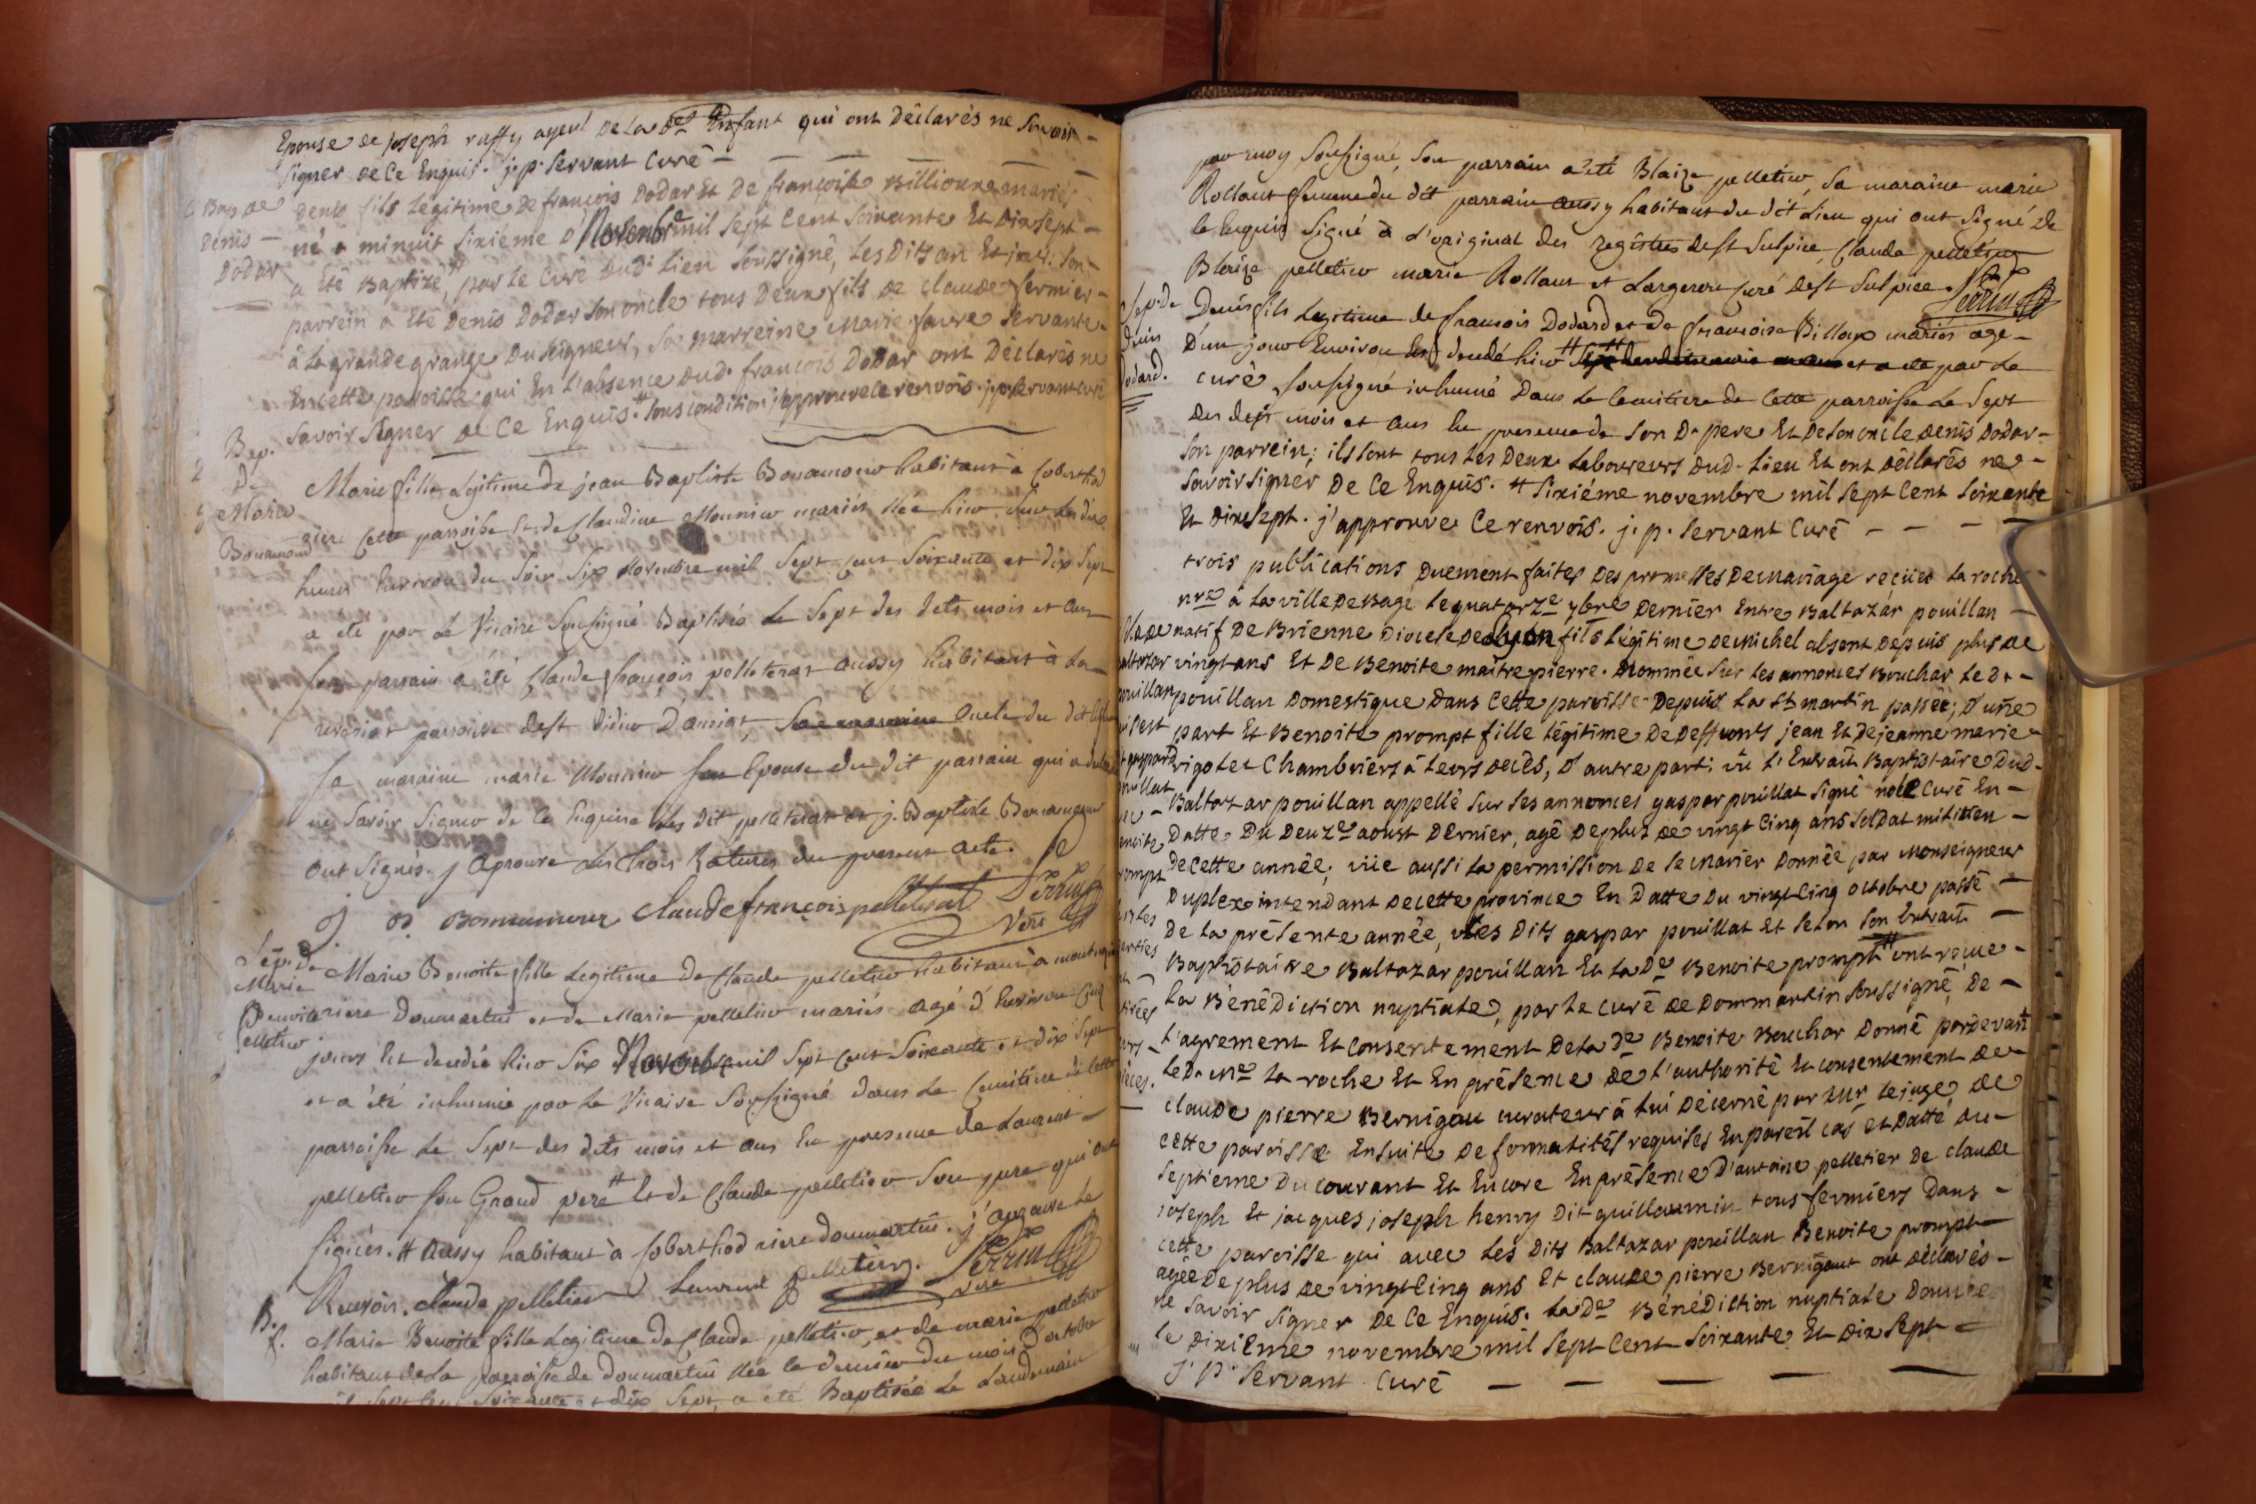 Epouse de joseph raffy ayeul de la dte Enfant qui ont déclarés ne savoir
signer de ce Enquis. j. p. servant curé
Bap. de
denis
dodar
denis fils legitime de françois dodar Et de françoise Billioux mariés
né à minuit sixiéme Novembre mil sept cent soixante Et dix sept
a Eté Baptizé # par le curé dud. lieu soussigné, les dits an Et jour. son
parrein a Eté denis dodar son oncle tous deux fils de claude fermier
à la grande grange du seigneur, sa marreine Marie favre servante
En cette paroisse qui En l'absence dud. françois dodar ont déclarés ne
savoir signer de ce Enquis. # sous condition j'approuve ce renvois. j. p. servant curé
Bap.
De
Marie
Bonamour
Marie fille legitime de jean Baptiste Bonamour habitant à Coberthod
riere cette parroisse Et de Claudine Monnier mariés née hier
heures Environ du soir six Novembre mil sept cent soixante et dix sept
a été par le Vicaire soussigné Baptisée le sept des dits mois et an
son parrain a été Claude françois pelleterat aussy habitant à la
parroisse de st Didier D'aussiat, sa maraine oncle du dit
sa maraine marie Monnier son Epouse du dit parrain qui a declaré
ne savoir signer de ce Enquise les dit pelleterat et j. Baptiste Bonamour
ont signés. j aprouve les trois ratures du present acte.
j. B. Bonnamour claude françois pelleterat Perrin
Vere
Sep. de
Marie
Benoite
pelletier
Marie Benoite fille legitime de Claude pelletier habitant à
riere dommartin et de Marie pelletier mariés agé d'Environ Cinq
jours Est decedée hier six Novembre mil sept cent soixante et dix sept
et a été inhumée par le Vicaire soussigné dans le Cemitiere de cette
parroisse le sept des dits mois et ans En presence de Laurent
pelletier son Grand pere # et de Claude pelletier son pere qui ont
signés. # aussy habitant à Coberthod riere dommartin. j'aprouve le
Renvoir. claude pelletier Laurent pelletier. Perrin
vire
B.
f.
Marie Benoite fille Legitime de Claude pelletier, et de marie pelletier
habitant de la parroisse de dommartin Née le dernier du mois D'octobre
mil sept cent soixante et dix sept, a été Baptisée le Landemain
par moy soussigné, son parrain a été Blaize pelletier, sa maraine marie
Rollant femme du dit parrain aussy habitant du dit Lieu qui ont signé de
ce Enquis signé à l'original des registres de st sulpice, Claude pelletier
Blaize pelletier marie Rollant et Largeron curé de st Sulpice. Perrin
Sep. de
denis
dodard.
Denis fils Legitime de francois Dodard et de francoise Billoux mariés agé
D'un jour Environ Est decedé hier # et a été par le
curé soussigné inhumé Dans le Cemitiere de Cette parroisse le Sept
des dits mois et ans En presence de son Dt pere Et de son oncle denis dodar
son parrein; ils sont tous les deux laboureurs dud. lieu Et ont déclarés ne
savoir signer de ce Enquis. # sixiéme novembre mil sept cent soixante
Et dix sept. j'approuve ce renvois. j. p. servant curé
trois publications duement faites des promesses de mariage reçües La roche
nre à la ville de Bagé le quatorze ybre dernier Entre Baltazar pouillan
natif de Brienne diocese de Lyon fils légitime de michel absent depuis plus de
vingt ans Et de Benoite maitrepierre. Nommée sur les annonces Bouchar le dt
pouillan domestique dans cette paroisse depuis la st martin passée; d'une
part Et Benoite prompt fille légitime de deffunts jean Et de jeanne marie
rigolet Chambriers à leurs décés, d'autre part: vû l'Extrait Baptistaire dud.
Baltazar pouillan appellé sur les annonces gaspar pouillat signé curé En
datte du deuze aoust dernier, agé de plus de vingt cinq ans soldat militien
de cette année; vüe aussi la permission de se marier donnée par Monseigneur
Duplex intendant de cette province En datte du vingt cinq octobre passé
de la présente année, les dits gaspar pouillat Et selon son Extrait
Baptistaire Baltazar pouillan Et la de Benoite prompt # ont reçue
la Bénédiction nuptiale, par le curé de dommartin soussigné, de
l'agrement Et consentement de la de Benoite Bouchar donné pardevant
le d. me la roche Et En présence de l'authorité Et consentement de
claude pierre Bernigau curateur à lui décerné par mr le juge de
cette paroisse Ensuite de formalités requises En pareil cas et datté du
septieme du courant Et Encore En présence d'antoine pelletier de claude
joseph Et jacques joseph henry dit guillaumin tous fermiers dans
cette paroisse qui avec les dits Baltazar pouillan Benoite prompt
agée de plus de vingt cinq ans Et claude pierre Bernigaut ont déclarés
ne savoir signer de ce Enquis. la de Bénédiction nuptiale donnée
le dixieme novembre mil sept cent soixante Et dix sept
J. P. servant curé